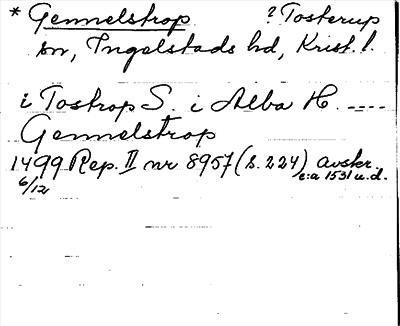 * Gennelstrop ? Tosterup
sn, Ingelstads hd, Krist. l.
i Tostrop S. i Alba H. ----
Gennelstrop
1499 Rep. II nr 8957 (s. 224) avskr.
6/12 c:a 1531 u.d.